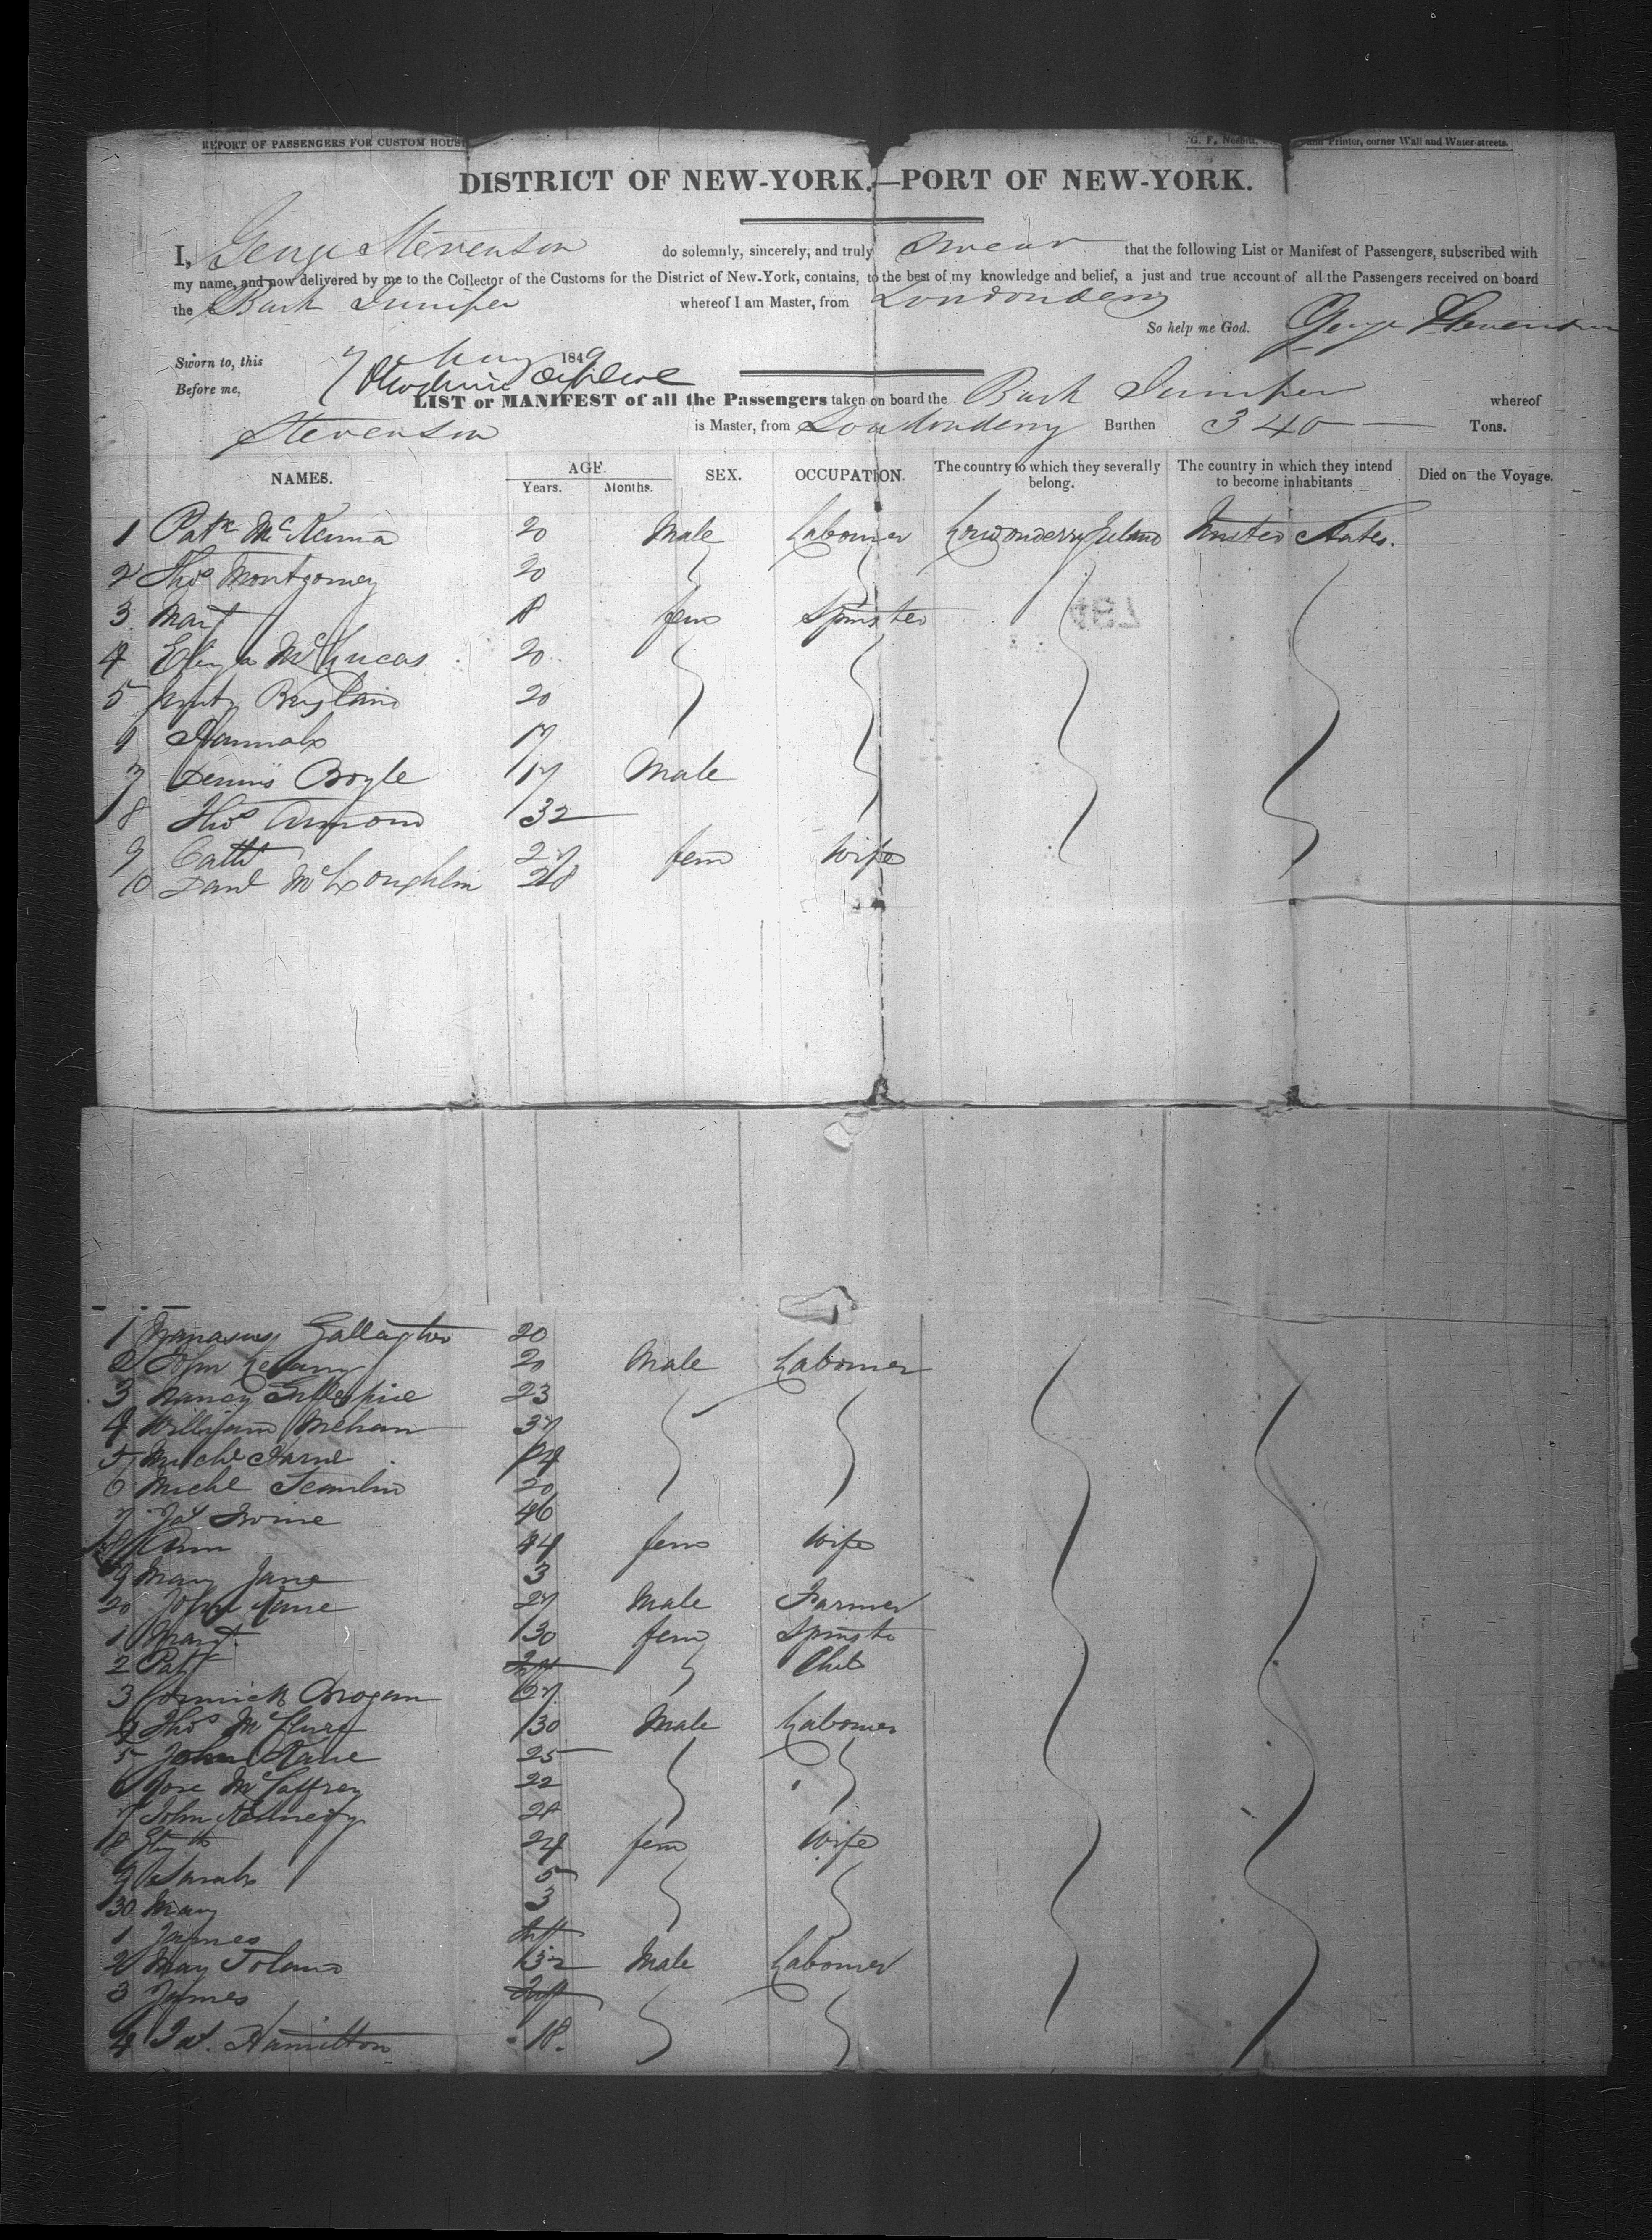 REPORT OF PASSENGERS FOR CUSTOM HOUS
G. F. Nesbitt, and Printer, corner Wall and Water-streets.
DISTRICT OF NEW-YORK.—PORT OF NEW-YORK.
I, George Stevenson do solemnly, sincerely, and truly swear that the following List or Manifest of Passengers, subscribed with
my name, and now delivered by me to the Collector of the Customs for the District of New-York, contains, to the best of my knowledge and belief, a just and true account of all the Passengers received on board
the Bark Juniper whereof I am Master, from Londonderry
So help me God. George Stevenson
Sworn to, this 7 May 1849
Before me,
LIST or MANIFEST of all the Passengers taken on board the Bark Juniper whereof
Stevenson is Master, from Londonderry Burthen 340 Tons.
NAMES. AGE. Years. Months. SEX. OCCUPATION. The country to which they severally belong. The country in which they intend to become inhabitants Died on the Voyage.
1 Patk McKenna 20 Male Labourer Londonderry Ireland United States.
2 Thos Montgomery 20
3 Margt 18 fem Spinster
4 Eliza McLucas 20
5 20
Hannah 17
7 Dennis Boyle 17 Male
8 Thos 32
9 Cath 27 fem Wife
10 Danl McLoughlin 28
1 Manasus Gallagher 20
2 John 20 Male Labourer
3 Nancy Gillespie 23
4 William Mehan 37
5 Michl
6 Michl Scanlin 20
7 Jas Irvine 46
18 Ann 44 fem Wife
9 Mary Jane 3
20 John Kane 27 Male Farmer
1 Margt. 30 fem Spinster
2 Patk Inft Chil
3 Cormick Brogan 27
4 Thos McClure 30 Male Labourer
5 John Kane 25
6 Rose McCaffrey 22
7 John Kennedy 28
8 24 fem Wife
9 Sarah 5
30 Mary 3
1 James Inft
2 May Toland 32 Male Labourer
3 James Inft
4 Jas. Hamilton 18.